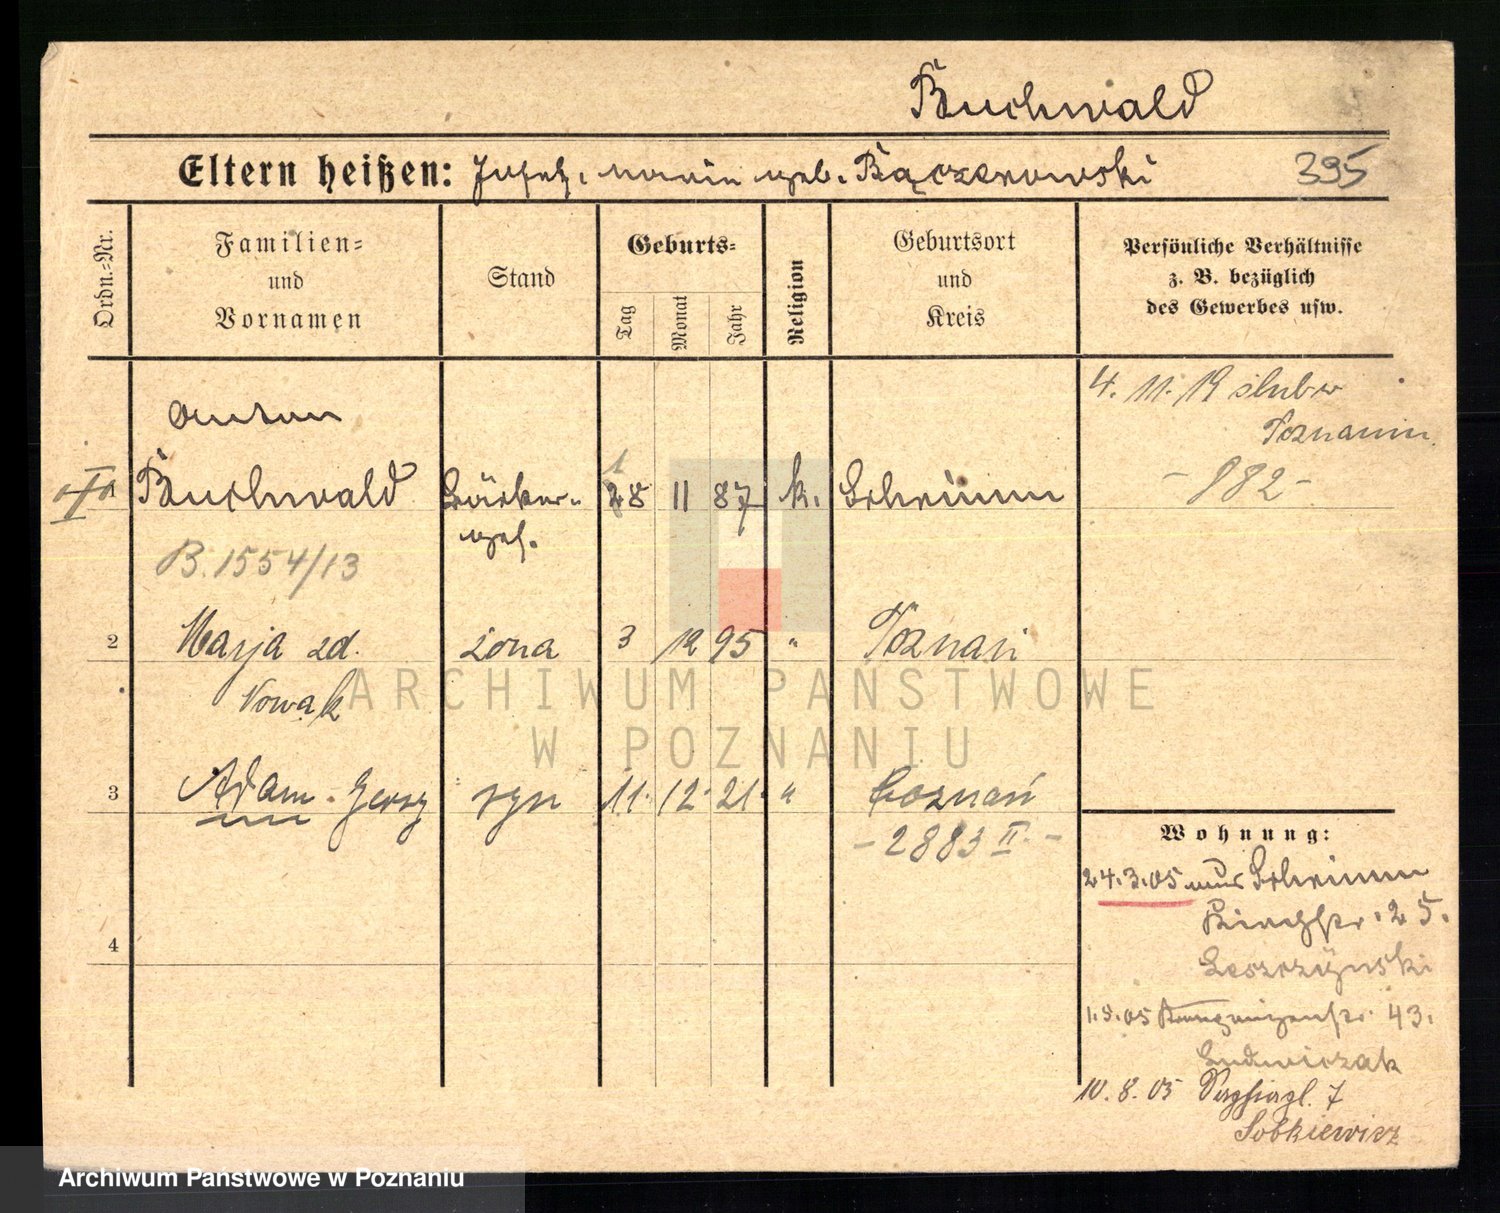 Buchwald
Eltern heißen: Josef, Maria geb. Bączerowski 395
Ordn.=Nr.
Familien=
und
Vornamen
Stand
Geburts=
Tag
Monat
Jahr
Religion
Geburtsort
und
Kreis
Persönliche Verhältnisse
z. B. bezüglich
des Gewerbes usw.
4. 11. 19 ślub w
Poznaniu
- 882 -
Anton
Buchwald Bäcker- 28 11 87 k. Schrimm
1
ges.
B. 1554/13
2 Marja zd. żona 3 12 95 " Poznań
Nowak
3 Adam - Jerzy syn 11. 12. 21. " Poznań
- 2883 II. -
4
Wohnung:
24.3.05 aus Schrimm
Kirchstr. 25.
Leszczyński
1.5.05 43.
Ludwiczak
10.8.05 7
Sobkiewicz
ARCHIWUM PAŃSTWOWE
W POZNANIU
Archiwum Państwowe w Poznaniu